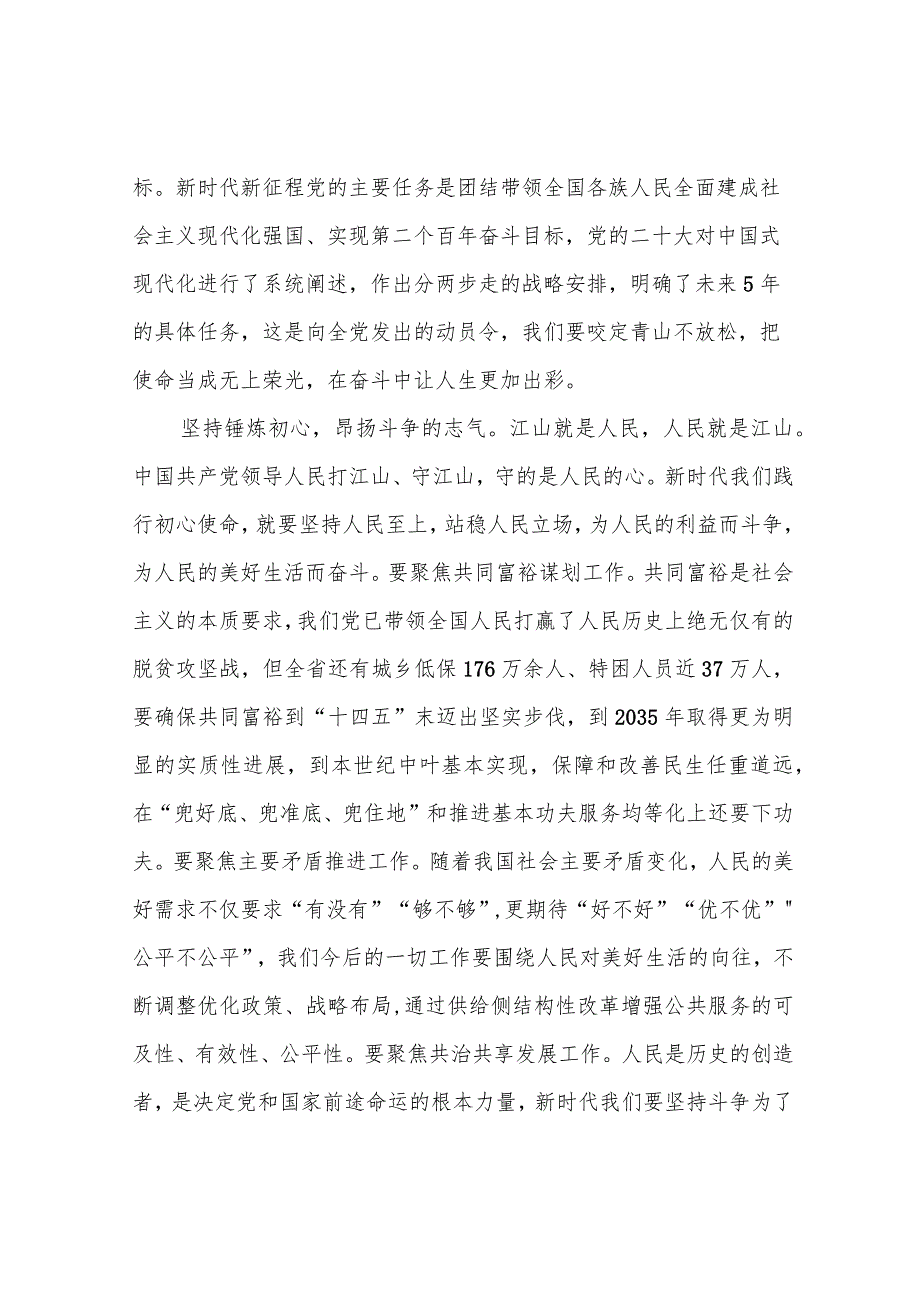 标。新时代新征程党的主要任务是团结带领全国各族人民全面建成社
会主义现代化强国、实现第二个百年奋斗目标，党的二十大对中国式
现代化进行了系统阐述，作出分两步走的战略安排，明确了未来 5 年
的具体任务，这是向全党发出的动员令，我们要咬定青山不放松，把
使命当成无上荣光，在奋斗中让人生更加出彩。
坚持锤炼初心，昂扬斗争的志气。江山就是人民，人民就是江山。
中国共产党领导人民打江山、守江山，守的是人民的心。新时代我们践
行初心使命，就要坚持人民至上，站稳人民立场，为人民的利益而斗争，
为人民的美好生活而奋斗。要聚焦共同富裕谋划工作。共同富裕是社会
主义的本质要求，我们党已带领全国人民打赢了人民历史上绝无仅有的
脱贫攻坚战，但全省还有城乡低保 176 万余人、特困人员近 37 万人，
要确保共同富裕到“十四五”末迈出坚实步伐，到 2035 年取得更为明
显的实质性进展，到本世纪中叶基本实现，保障和改善民生任重道远，
在“兜好底、兜准底、兜住地”和推进基本功夫服务均等化上还要下功
夫。要聚焦主要矛盾推进工作。随着我国社会主要矛盾变化，人民的美
好需求不仅要求“有没有”“够不够”,更期待“好不好”“优不优”"
公平不公平”，我们今后的一切工作要围绕人民对美好生活的向往，不
断调整优化政策、战略布局,通过供给侧结构性改革增强公共服务的可
及性、有效性、公平性。要聚焦共治共享发展工作。人民是历史的创造
者，是决定党和国家前途命运的根本力量，新时代我们要坚持斗争为了